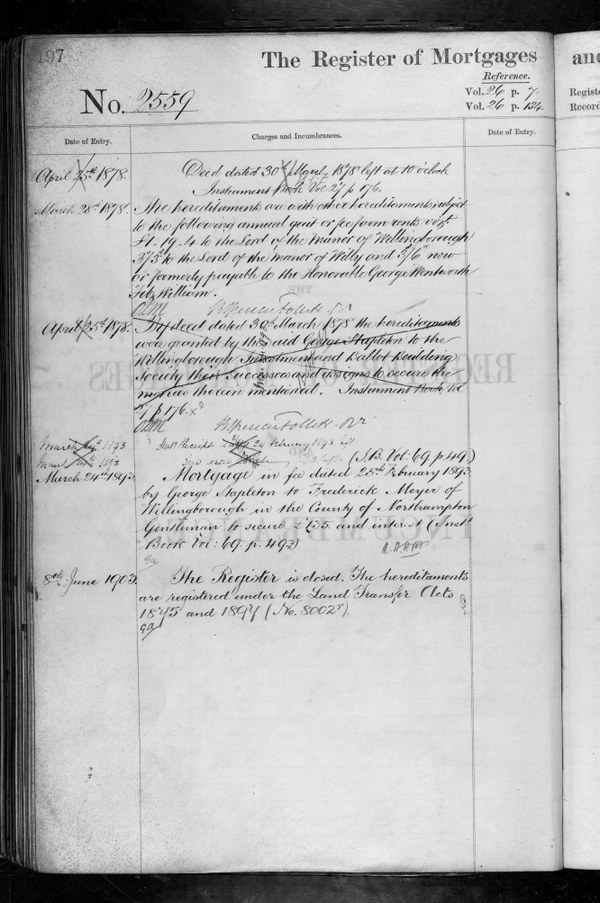 197
The Register of Mortgages
and
Reference.
Vol. 26 p. 7.
Vol. 26 p. 134.
No. 2559
Regist
Record
Date of Entry.
Charges and Incumbrances.
Date of Entry.
April 25th 1878.
Deed dated 30th March 1878 left at 10 o'clock
Instrument Book Vol 27 p 176.
March 28th 1878.
The hereditaments are with other hereditaments subject
to the following annual quit or fee farm rents vizt.
£1-19-4 to the Lord of the Manor of Wellingborough
to the Lord of the Manor of and 3/6d now
or formerly payable to the Honorable George Wentworth
Fitzwilliam.
April 25th 1878.
By deed dated 30th March 1878 the hereditaments
were granted by the said George Stapleton to the
Wellingborough Investment and Ballot Building
Society their successors and assigns to secure the
monies therein mentioned. Instrument Book Vol
27 p 176.
March 1893
Receipt 24 February 1893
March 1893
(I.B. Vol: 69. p. 492)
March 24th 1893.
Mortgage in fee dated 25th February 1893
by George Stapleton to Frederick Meyer of
Wellingborough in the County of Northampton
Gentleman to secure £435 and interest (Inst
Book Vol: 69. p. 492)
8th June 1903.
The Register is closed. The hereditaments
are registered under the Land Transfer Acts
1875 and 1897 (No. 8002).